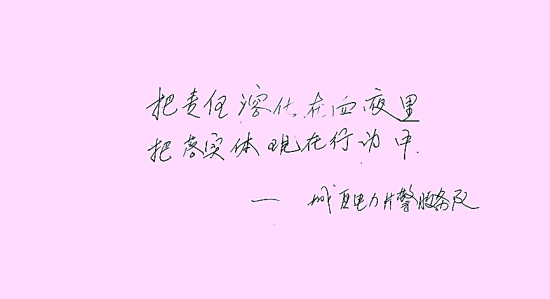 把责任溶化在血液里
把落实体现在行动中
— 城区电力片警服务队